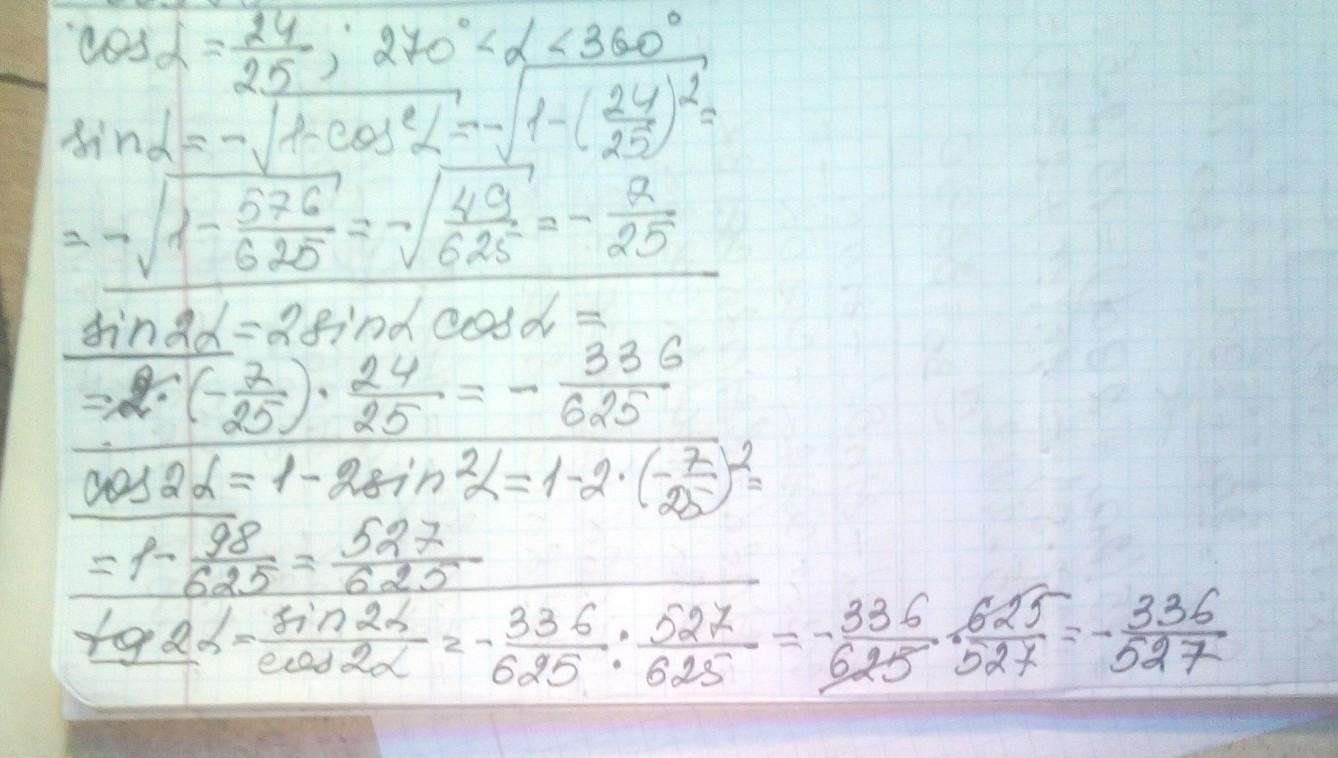 cosα = 24/25; 270° < α < 360°
sinα = -√(1-cos²α) = -√(1-(24/25)²) =
= -√(1 - 576/625) = -√(49/625) = - 7/25
sin2α = 2sinα cosα =
= 2·(-7/25)·24/25 = - 336/625
cos2α = 1 - 2sin²α = 1-2·(-7/25)² =
= 1 - 98/625 = 527/625
tg2α = sin2α/cos2α = - 336/625 : 527/625 = - 336/625 · 625/527 = - 336/527